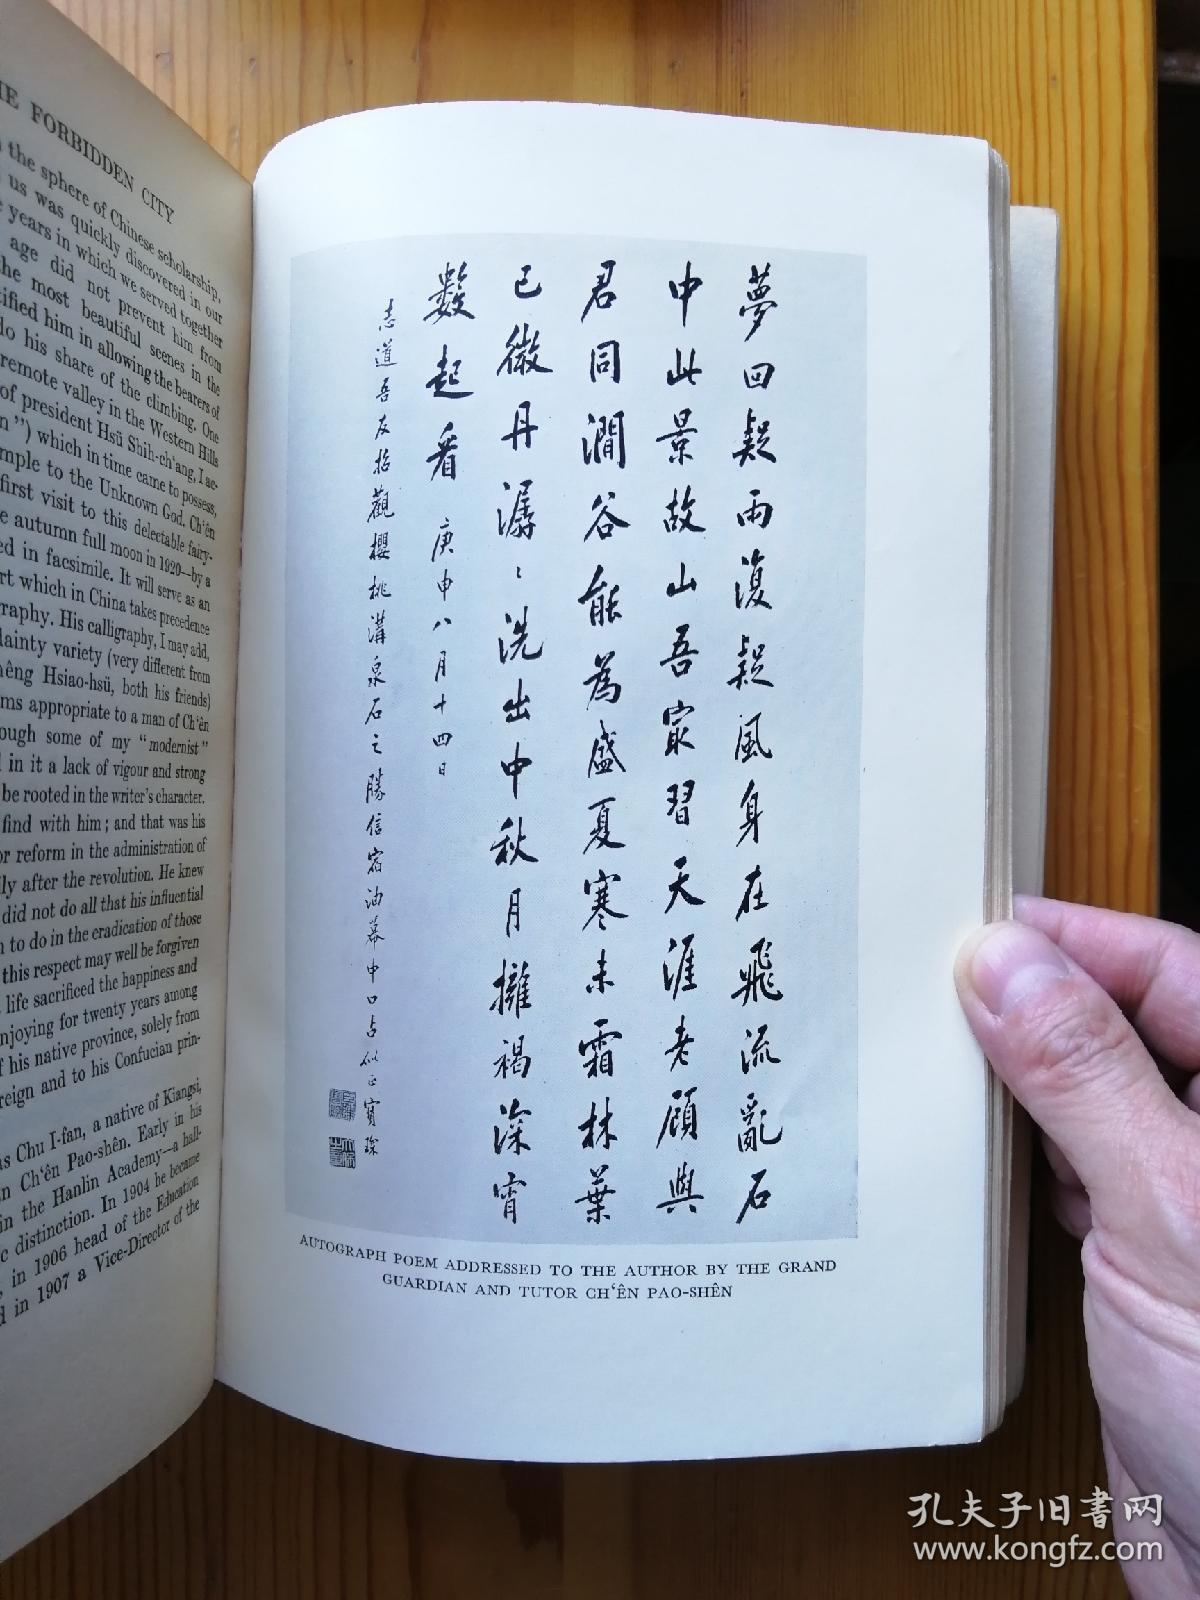 THE FORBIDDEN CITY
the sphere of Chinese scholarship,
us was quickly discovered in our
years in which we served together
age did not prevent him from
the most beautiful scenes in the
him in allowing the bearers of
do his share of the climbing. One
remote valley in the Western Hills
of president Hsü Shih-ch'ang, I
") which in time came to possess,
temple to the Unknown God. Ch'ên
first visit to this delectable fairy-
autumn full moon in 1920—by a
in facsimile. It will serve as an
art which in China takes precedence
His calligraphy, I may add,
dainty variety (very different from
Hsiao-hsü, both his friends)
appropriate to a man of Ch'ên
some of my "modernist"
in it a lack of vigour and strong
be rooted in the writer's character.
find with him; and that was his
or reform in the administration of
after the revolution. He knew
did not do all that his influential
to do in the eradication of those
this respect may well be forgiven
life sacrificed the happiness and
enjoying for twenty years among
of his native province, solely from
and to his Confucian prin-
Chu I-fan, a native of Kiangsi,
Ch'ên Pao-shên. Early in his
in the Hanlin Academy—a hall-
distinction. In 1904 he became
in 1906 head of the Education
in 1907 a Vice-Director of the
夢回疑雨復疑風身在飛流亂石
中此景故山吾家習天涯老顧與
君同澗谷能為盛夏寒未霜林葉
已微丹潺潺洗出中秋月擁褐深宵
數起看 庚申八月十四日
志道吾友招觀櫻桃溝泉石之勝信宿油幕中口占似正寶琛
AUTOGRAPH POEM ADDRESSED TO THE AUTHOR BY THE GRAND
GUARDIAN AND TUTOR CH'ÊN PAO-SHÊN
孔夫子旧书网
www.kongfz.com